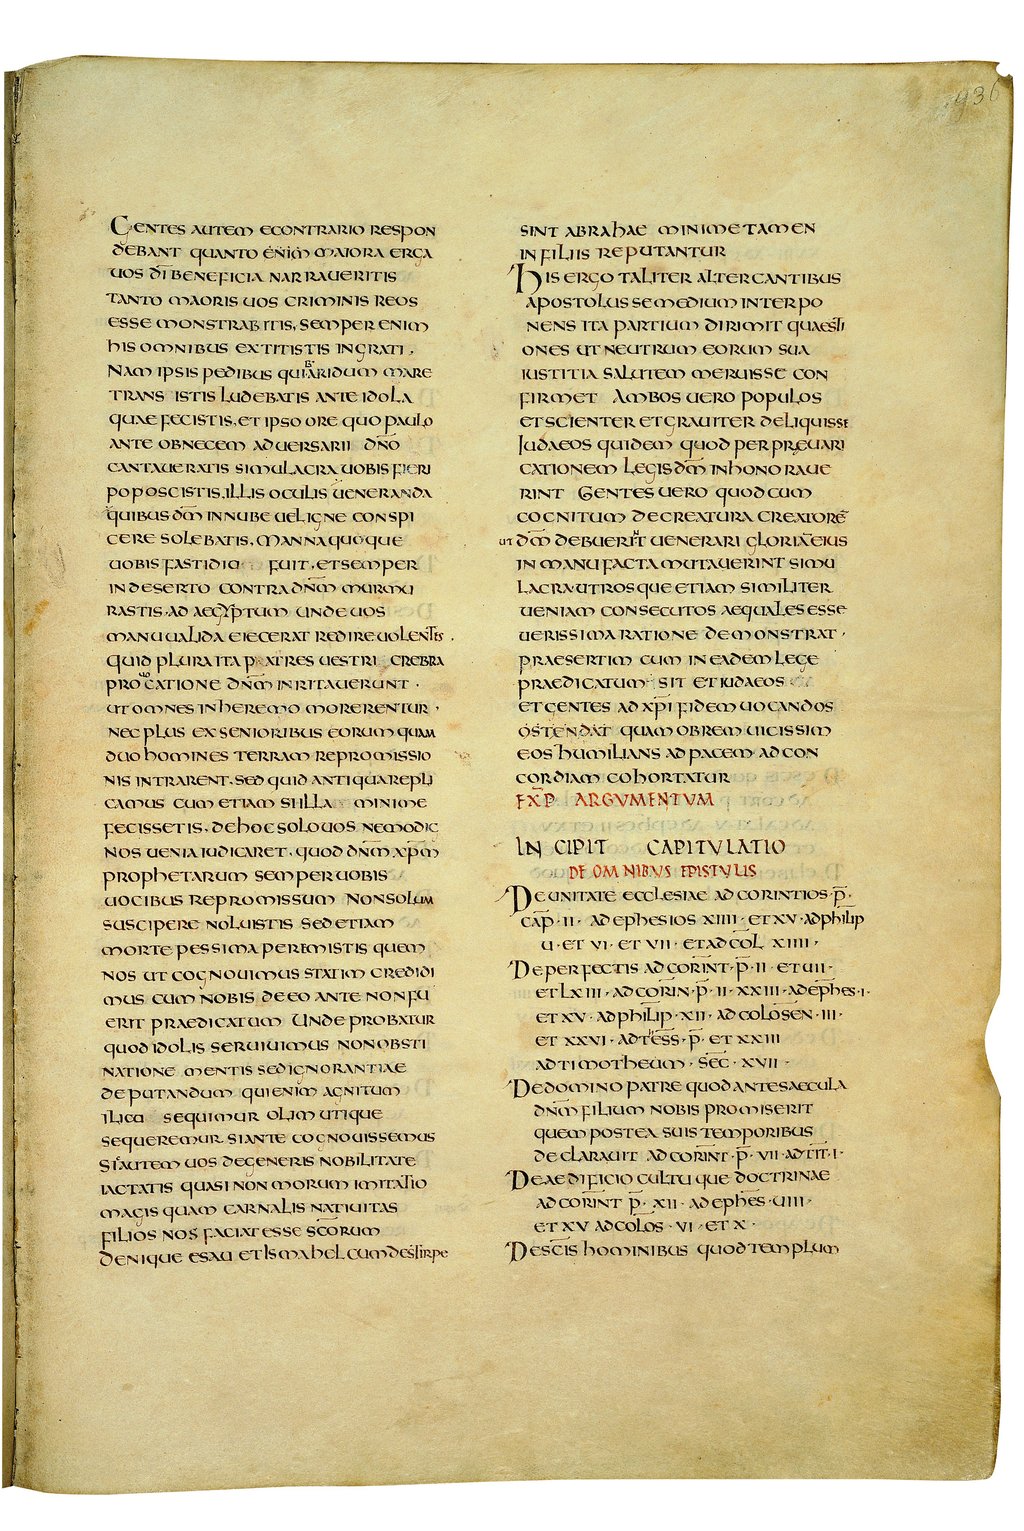 936
Gentes autem econtrario respon
debant quanto enim maiora erga
uos dī beneficia narraueritis
tanto maoris uos criminis reos
esse monstrabitis, semper enim
his omnibus extitistis ingrati.
Nam ipsis pedibus quib aridum mare
trans istis ludebatis ante idola
quae fecistis, et ipso ore quo paulo
ante obnecem aduersarii dn̄o
cantaueratis simulacra uobis fieri
poposcistis, illis oculis ueneranda
quibus dm̄ in nube uel igne conspi
cere solebatis, manna quoque
uobis fastidio fuit, et semper
in deserto contra dn̄m murmu
rastis, ad aegyptum unde uos
manu ualida eiecerat redire uolentes.
quid plura ita patres uestri crebra
prouocatione dn̄m inritauerunt.
ut omnes in heremo morerentur,
nec plus ex senioribus eorum quam
duo homines terram repromissio
nis intrarent. sed quid antiqua repli
camus cum etiam si illa minime
fecissetis, de hoc solo uos nemo dic
nos uenia iudicaret, quod dn̄m xp̄m
prophetarum semper uobis
uocibus repromissum non solum
suscipere noluistis sed etiam
morte pessima peremistis quem
nos ut cognouimus statim credidi
mus cum nobis de eo ante non fu
erit praedicatum Unde probatur
quod idolis seruiuimus non obsti
natione mentis sed ignorantiae
deputandum qui enim agnitum
ilico sequimur olim utique
sequeremur si ante cognouissemus
Si autem uos degeneris nobilitate
iactatis quasi non morum imitatio
magis quam carnalis natiuitas
filios nos faciat esse sc̄orum
Denique esau et Ismahel cum de stirpe
sint abrahae minime tamen
in filiis reputantur
His ergo taliter altercantibus
apostolus se medium interpo
nens ita partium dirimit quaesti
ones ut neutrum eorum sua
iustitia salutem meruisse con
firmet Ambos uero populos
et scienter et grauiter deliquisse
Iudaeos quidem quod per preuari
cationem legis dm̄ inhonoraue
rint Gentes uero quod cum
cognitum de creatura creatorē
ut dm̄ debuerint uenerari gloriā eius
in manu facta mutauerint simu
lacra. utrosque etiam similiter
ueniam consecutos aequales esse
uerissima ratione demonstrat.
praesertim cum in eadem lege
praedicatum sit et iudaeos
et gentes ad xp̄i fidem uocandos
ostendat quam obrem uicissim
eos humilians ad pacem ad con
cordiam cohortatur
EXP̄ ARGVMENTVM
INCIPIT CAPITVLATIO
DE OMNIBVS EPISTVLIS
De unitate ecclesiae ad corintios · p̄ ·
cap̄ · II · ad ephesios XIIII · et XV · ad philip
U · et VI · et VII · et ad col̄ XIIII ·
De perfectis ad corint̄ · p̄ · II · et UII ·
et LXIII · ad corin̄ · p̄ · II · XXIII · ad ephes · I ·
et XV · ad philip̄ · XII · ad colosen̄ · III ·
et XXVI · ad thess̄ · p̄ · et XXIII
ad timotheum · sec̄ · XVII ·
De domino patre quod ante saecula
dn̄m filium nobis promiserit
quem postea suis temporibus
declarauit ad corint̄ · p̄ · VII · ad tit̄ · I ·
De aedificio cultu que doctrinae
ad corint̄ p̄ · XII · ad ephes̄ · UIII ·
et XV ad colos̄ · VI · et X ·
De sc̄is hominibus quod templum